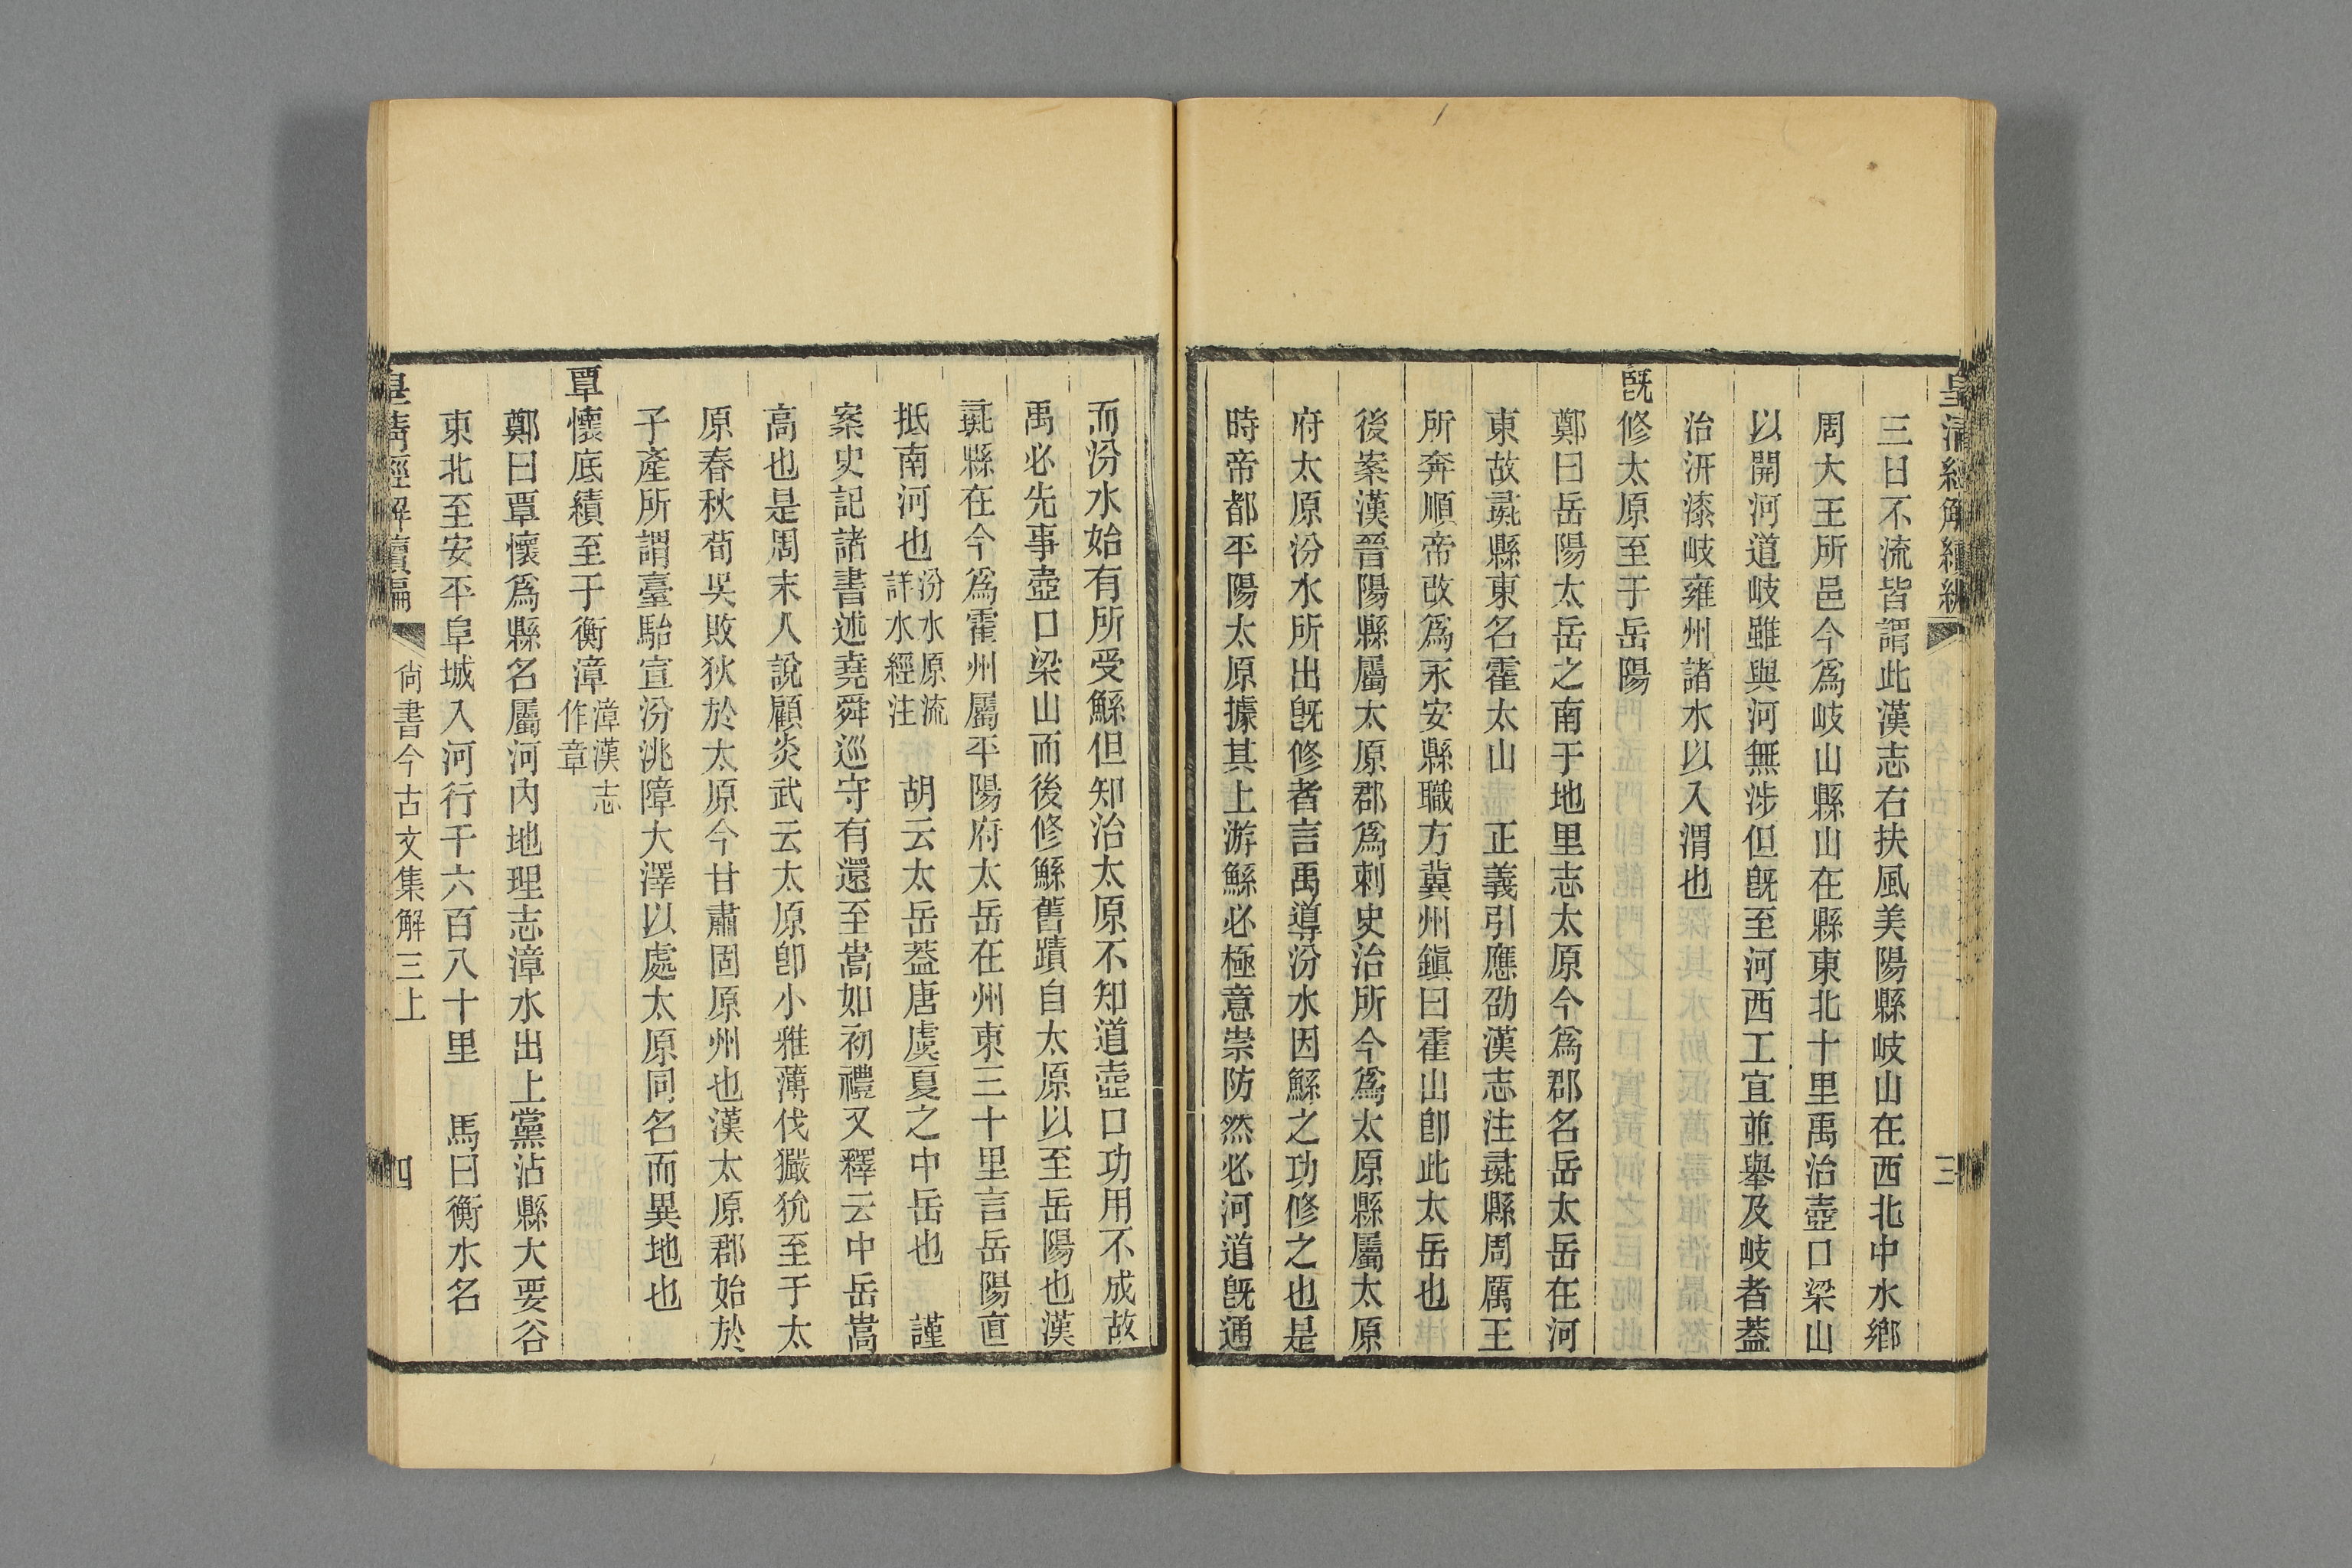 皇清經解續編
三
三日不流皆謂此漢志右扶風美陽縣岐山在西北中水鄉
周大王所邑今爲岐山縣山在縣東北十里禹治壺口梁山
以開河道岐雖與河無涉但旣至河西工宜並舉及岐者蓋
治汧漆岐雍州諸水以入渭也
旣修太原至于岳陽
鄭曰岳陽太岳之南于地里志太原今爲郡名岳太岳在河
東故彘縣東名霍太山　正義引應劭漢志注彘縣周厲王
所奔順帝改爲永安縣職方冀州鎭曰霍山卽此太岳也
後案漢晉陽縣屬太原郡爲刺史治所今爲太原縣屬太原
府太原汾水所出旣修者言禹導汾水因鯀之功修之也是
時帝都平陽太原據其上游鯀必極意崇防然必河道旣通
而汾水始有所受鯀但知治太原不知道壺口功用不成故
禹必先事壺口梁山而後修鯀舊蹟自太原以至岳陽也漢
彘縣在今爲霍州屬平陽府太岳在州東三十里言岳陽直
抵南河也汾水原流詳水經注　胡云太岳蓋唐虞夏之中岳也　謹
案史記諸書述堯舜巡守有還至嵩如初禮又釋云中岳嵩
高也是周末人說顧炎武云太原卽小雅薄伐玁狁至于太
原春秋荀吳敗狄於太原今甘肅固原州也漢太原郡始於
子產所謂臺駘宣汾洮障大澤以處太原同名而異地也
覃懷底績至于衡漳漳漢志作章
鄭曰覃懷爲縣名屬河內地理志漳水出上黨沾縣大要谷
東北至安平阜城入河行千六百八十里　馬曰衡水名
皇清經解續編
尙書今古文集解三上
四